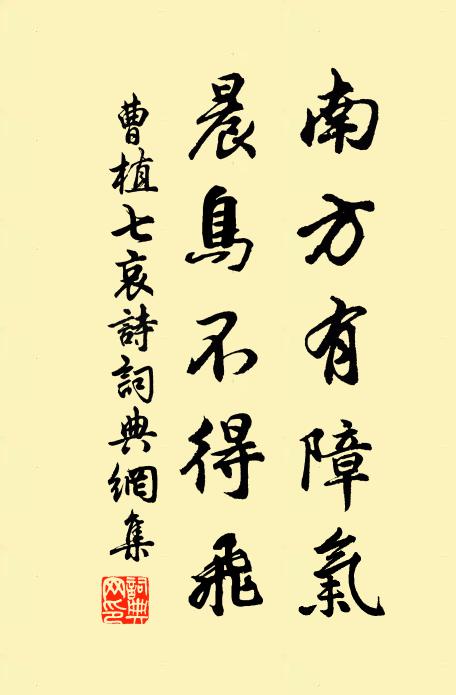 南方有障氣
晨鳥不得飛
曹植七哀詩詞典網集
詞典網印